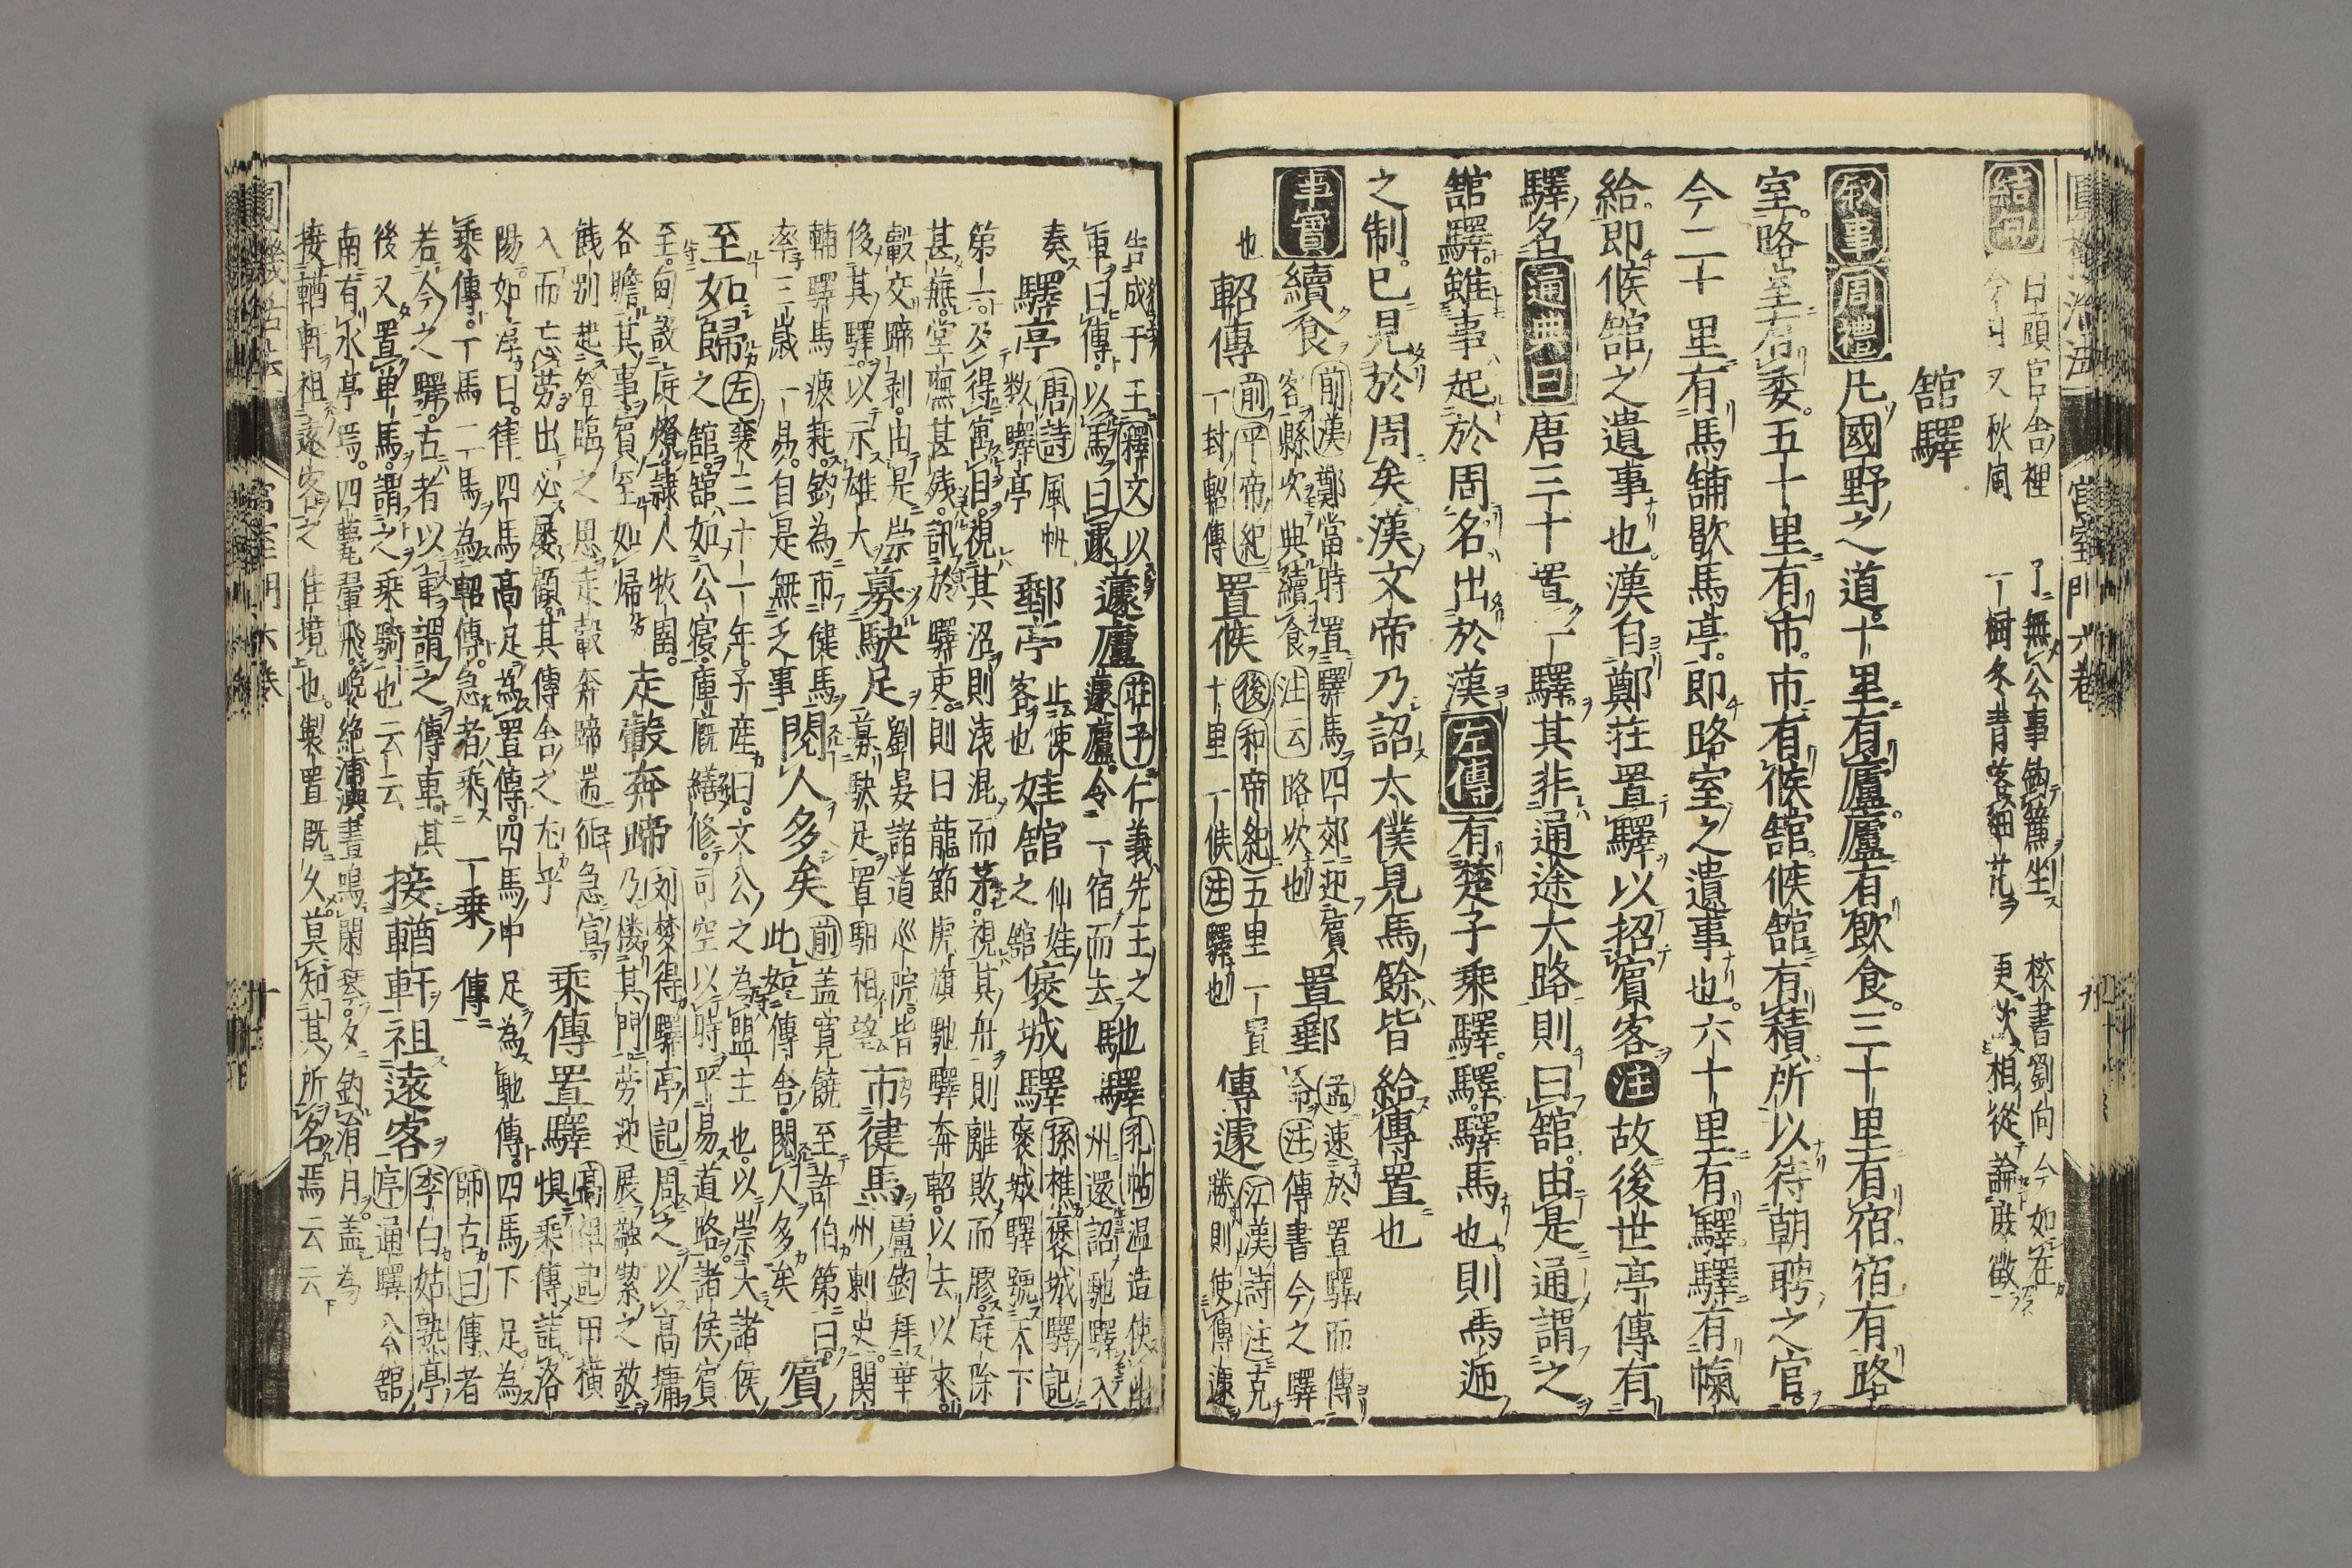 圓機活法 宮室門六卷 九
結句 曰頭官舎裡 了無公事鈎簾坐 校書劉向今如在
今 又秋風 一樹冬青落細花 更次相從論 徴
館驛
叙事 周禮 凡國野之道十里有廬廬有飲食三十里有宿宿有路
室路室有委五十里有市市有候館候館有積所以待朝聘之官
今二十里有馬舗歇馬亭即路室之遺事也六十里有驛驛有
給即候館之遺事也漢自鄭荘置驛以招賓客注故後世亭傳有
驛名 通典曰 唐三十置一驛其非通途大路則曰館由是通謂之
館驛雖事起於周名出於漢 左傳 有楚子乘驛驛馬也則馬逓
之制已見於周矣漢文帝乃詔太僕見馬餘皆給傳置也
事實 續食 前漢鄭當時置驛馬四郊迎賓 置郵 孟速於置驛而傳
客縣次典續食注云略次也 命注傳書今之驛
也 軺傳 前平帝紀 置候 後和帝紀五里一置 傳遽 江漢詩注克
一封軺傳 十里一候注驛也 勝則使傳遽
告成于王釋文以 蘧廬 荘子仁義先王之 馳驛 孔帖温造使
車曰傳以馬曰遽 蘧廬令一宿而去 州還詔馳驛入
奏 驛亭 唐詩風 郵亭 止 娃館 仙娃 褒城驛 孫樵褒城驛記
数驛亭 客也 之館 褒城驛號不下
第一及得寓目視其沼則淺混而茅視其舟則離敗而膠庭除
甚蕪堂廡甚殘訊於驛吏則曰龍節虎旗馳驛奔軺以去以來
轂交蹄剥由是崇 劉晏諸道巡院皆 盧鈞拜華
侈其驛以示雄大 募駃足 募駃足置驛相望 市健馬 州刺史関
輔驛馬疲耗鈞為市健馬 前蓋寛饒至許伯第曰
率三歳一易自是無乏事 閲人多矣 此如傳舎閲人多矣 賓
至如歸 左襄三十一年子産曰文公之為盟主也以崇大諸侯
之館館如公寝庫厩繕修司空以時平易道路諸侯賓
至甸設庭燎隷人牧圉 走轂奔蹄 刘夢得驛亭記周之以高墉
各瞻其事賓至如歸 乃樓其門労迎展 縶之敬
餞別起登臨之思走轂奔蹄 急 乘傳置驛 高祖記田横
入而亡労出必屡顧其傳舎之尤乎 惧乘傳詣洛
陽如淳曰律四馬高足為置傳四馬中足為馳傳四馬下足為
乘傳一馬二馬為軺傳急者乘 一乘傳 師古曰傳者
若今之驛古者以車謂之傳車其 接軒祖遠客 李白姑熟亭
後又置単馬謂之乘騎也云云 序通驛公館
南有水亭焉四甍翬飛巉絶浦 晝鳴閑琴夕釣 月蓋為
接 軒祖遠客之佳境也製置既久莫知其所名焉云云